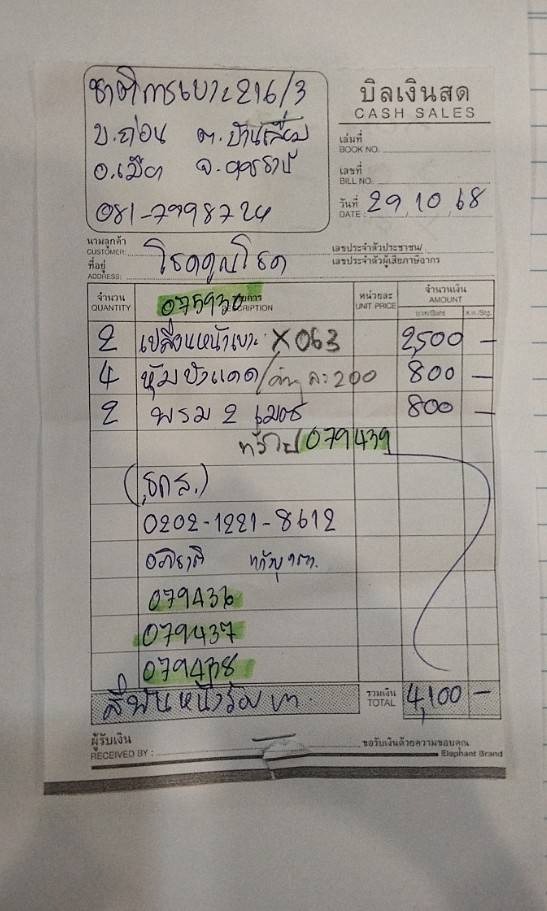 ชาติการเบาะ 216/3
บิลเงินสด
CASH SALES
บ.ถ่อน ต.บ้านเลื่อม
เล่มที่
BOOK NO.
อ.เมือง จ.อุดรธานี
เลขที่
BILL NO.
081-7998724
วันที่ 29,10,68
DATE:
นามลูกค้า
CUSTOMER:
เลขประจำตัวประชาชน/
เลขประจำตัวผู้เสียภาษีอากร
ที่อยู่
ADDRESS:
โชคคูณโชค
จำนวน
QUANTITY
หน่วยละ
UNIT PRICE
จำนวนเงิน
AMOUNT
2 เปลี่ยนหน้าเบาะ X 063 2,500 -
4 หุ้มบังแดด/อันละ 200 800 -
2 พรม 2 เมตร 800 -
079439
(ธกส.)
0202-1221-8612
079436
079437
079438
สี่พันหนึ่งร้อยบาท
รวมเงิน
TOTAL
4,100 -
ผู้รับเงิน
RECEIVED BY :
ขอรับเงินด้วยความขอบคุณ
Elephant Brand